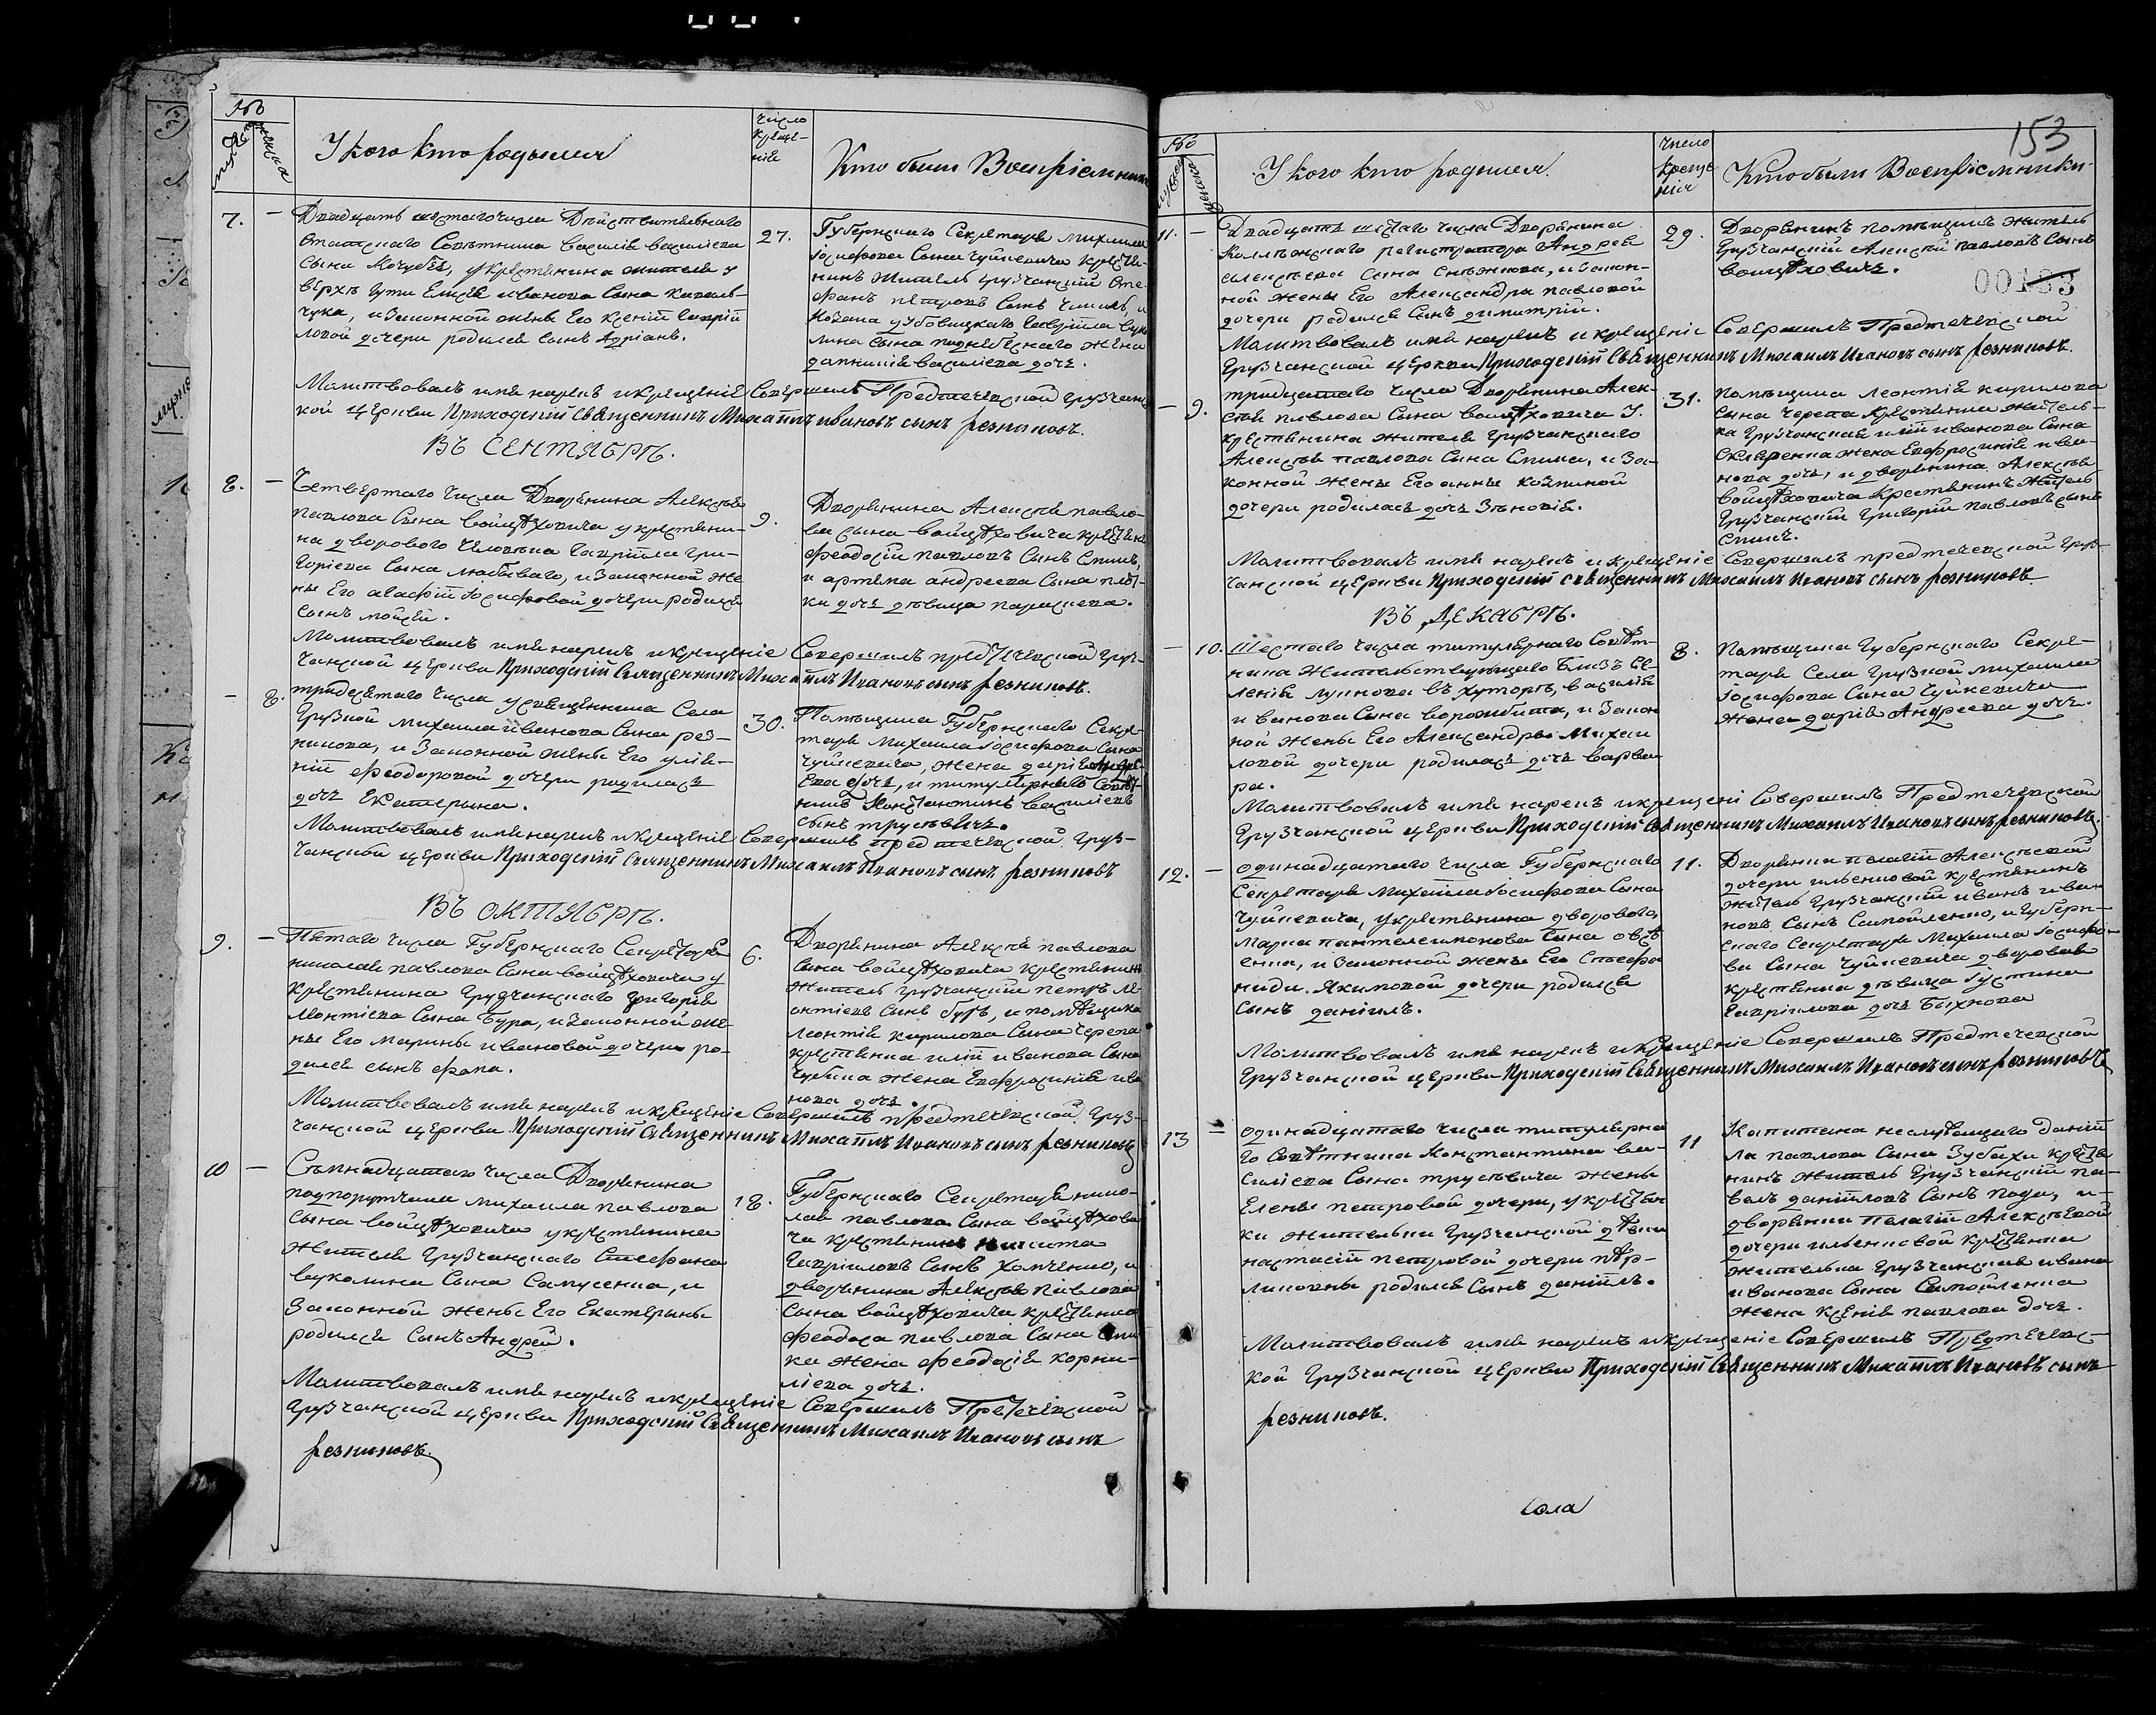 №
мужеска
женска
У кого кто родился
число
креще-
нія
Кто были Воспріемники
7. —
Двадцать шестаго числа Дѣйствительнаго
Статскаго Совѣтника Василія Василіева
Сына Кочубея, у крестянина жителя у
Ивана Сына Коваль-
чука, и Законной жены Его Ксеніи Гаврій
ловой дочери родился Сынъ Адріанъ.
27.
Губернскаго Секретаря Михаила
Іосифова Сына Чуйкевича крестя-
нинъ житель грузчанскій Сте-
фанъ Петровъ Сынъ
дочь.
Молитвовалъ имя нарекъ и крещеніе Совершилъ Предтечевской Грузчанс
кой церкви Приходскій Священникъ Михаилъ Ивановъ сынъ Резниковъ.
ВЪ СЕНТЯБРѢ.
8. —
Четвертаго числа Дворянина Алексѣя
Павлова Сына Войцѣховича у крестяни-
на дворового человѣка Гавріила Гри-
горіева Сына Любиваго, и Законной же
ны Его Агафіи Іосифовой дочери родился
Сынъ Мойсей.
9.
Дворянина Алексѣя Павло-
ва Сына Войцѣховича крестян
Феодосій Павловъ Сынъ Спилъ,
и Артема Андреева Сына
ки дочь дѣвица Параскева.
Молитвовалъ имя нарекъ и крещеніе Совершилъ предтечевской Груз-
чанской церкви Приходскій Священникъ Михаилъ Ивановъ сынъ Резниковъ.
— 8.
тридесятаго числа у священника Села
Грузкой Михаила Иванова Сына Рез-
никова, и Законной жены Его Уліа-
ніи Феодоровой дочери родилась
дочь Екатерина.
30.
Помѣщика Губернскаго Секре-
таря Михаила Іосифова Сына
Чуйкевича, жена Дарія Андре-
ева дочь, и титулярный Совѣт-
никъ Константинъ Василіевъ
Сынъ Трусевичь.
Молитвовалъ имя нарекъ и крещеніе Совершилъ предтечевской Груз-
чанской церкви Приходскій Священникъ Михаилъ Ивановъ сынъ Резниковъ
ВЪ ОКТЯБРѢ.
9. —
Пятаго числа Губернскаго Секретаря
Николая Павлова Сына Войцѣховича у
крестянина Грузчанскаго Григорія
Леонтіева Сына Бура, и Законной же-
ны Его Марины Ивановой дочери ро-
дился сынъ Фока.
6.
Дворянина Алексѣя Павлова
Сына Войцѣховича крестянинъ
житель Грузчанскій Петръ Ле-
онтіевъ Сынъ Буръ, и помѣщика
Леонтія Кирилова Сына Черепа
крестянина Иліи Иванова Сына
жена Евфросинія Ива
нова дочь.
Молитвовалъ имя нарекъ и крещеніе Совершилъ предтечевской Груз-
чанской церкви Приходскій Священникъ Михаилъ Ивановъ сынъ Резниковъ
10 —
Сѣмнадцатаго числа Дворянина
подпоручика Михаила Павлова
Сына Войцѣховича у крестянина
жителя Грузчанскаго Стефана
Вуколина Сына Сапусенка, и
Законной жены Его Екатерины
родился Сынъ Андрей.
18.
Губернскаго Секретаря Нико-
лая Павлова Сына Войцѣхови
ча крестянинъ Никита
Гавріиловъ Сынъ Хомченко, и
дворянина Алексѣя Павлова
Сына Войцѣховича крестянина
Феодора Павлова Сына Спи
ка жена Феодосія Корни-
ліева дочь.
Молитвовалъ имя нарекъ и крещеніе Совершилъ Предтечевской
Грузчанской церкви Приходскій Священникъ Михаилъ Ивановъ сынъ
Резниковъ.
153
№
мужеска
женска
У кого кто родился.
число
креще
нія
Кто были Воспріемники
11. —
Двадцать шестаго числа Дворянина
Коллежскаго регистратора Андрея
Алексѣева Сына Снѣжкова, и Закон-
ной жены Его Александры Павловой
дочери родился Сынъ Димитрій.
29.
Дворянинъ помѣщикъ житель
Грузчанскій Алексѣй Павловъ Сынъ
Войцѣховичь.
00153
Молитвовалъ имя нарекъ и крещеніе Совершилъ Предтечевской
Грузчанской церкви Приходскій Священникъ Михаилъ Ивановъ сынъ Резниковъ.
— 9.
тридцатаго числа Дворянина Алек-
сѣя Павлова Сына Войцѣховича у
крестянина жителя Грузчанскаго
Алексѣя Павлова Сына Спика, и За-
конной жены Его Анны Козминой
дочери родилась дочь Зѣновія.
31.
Помѣщика Леонтія Кирилова
Сына Черепа крестянина житель-
ка Грузчанская Иліи Иванова Сына
Скляренка жена Евфросинія Ива-
нова дочь, и дворянина Алексѣя
Войцѣховича крестянинъ житель
Грузчанскій Григорій Павловъ сынъ
Спикъ.
Молитвовалъ имя нарекъ и крещеніе Совершилъ предтечевской Груз-
чанской церкви Приходскій священникъ Михаилъ Ивановъ сынъ Резниковъ
ВЪ ДЕКАБРѢ.
— 10.
Шестаго числа титулярнаго Совѣт-
ника жительствующаго близь Се-
ленія Лукнова въ хуторѣ, Василія
Иванова Сына Ворожбита, и Закон
ной жены Его Александры Михаи
ловой дочери родилась дочь Варва
ра.
8.
Помѣщика Губернскаго Секре-
таря Села Грузкой Михаила
Іосифова Сына Чуйкевича
жена Дарія Андреева дочь.
Молитвовалъ имя нарекъ и крещені Совершилъ Предтечевской
Грузчанской церкви Приходскій Священникъ Михаилъ Ивановъ сынъ Резниковъ.
12. —
одинадцатаго числа Губернскаго
Секретаря Михаила Іосифова Сына
Чуйкевича, у крестянина дворового
Марка Пантелеимонова Сына Овсѣ
енка, и Законной жены Его Стеефа
ниди Якимовой дочери родился
Сынъ Даніилъ.
11.
Дворянки Пелагіи Алексѣевой
дочери Ильенковой крестянинъ
житель Грузчанскій Иванъ Ива-
новъ Сынъ Самойленко, и Губерн-
скаго Секретаря Михаила Іосифо-
ва Сына Чуйкевича дворовая
крестянка дѣвица Іустина
Гавріилова дочь Быхкова
Молитвовалъ имя нарекъ и крещеніе Совершилъ Предтечевской
Грузчанской церкви Приходскій Священникъ Михаилъ Ивановъ сынъ Резниковъ
13 —
одинадцатаго числа титулярна
го Совѣтника Константина Ва-
силіева Сына Трусевича жены
Елены Петровой дочери, у крестян
ки жительки Грузчанской дѣвки
Настасіи Петровой дочери
родился Сынъ Даніилъ.
11
Капитана неслужащаго Даніи
ла Павлова Сына Зубахи крестя
нинъ житель Грузчанскій Па-
велъ Даніиловъ Сынъ и
дворянки Пелагіи Алексѣевой
дочери Ильенковой крестянина
жителька Грузчанская Ивана
Иванова Сына Самойленка
жена Ксенія Павлова дочь.
Молитвовалъ имя нарекъ и крещеніе Совершилъ Предтечевс-
кой Грузчанской церкви Приходскій Священникъ Михаилъ Ивановъ сынъ
Резниковъ.
Села